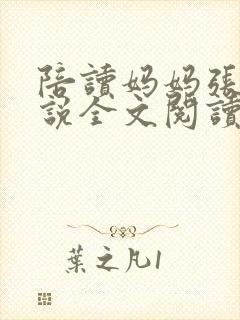 陪讀妈妈張
說全文閱讀
葉之凡1